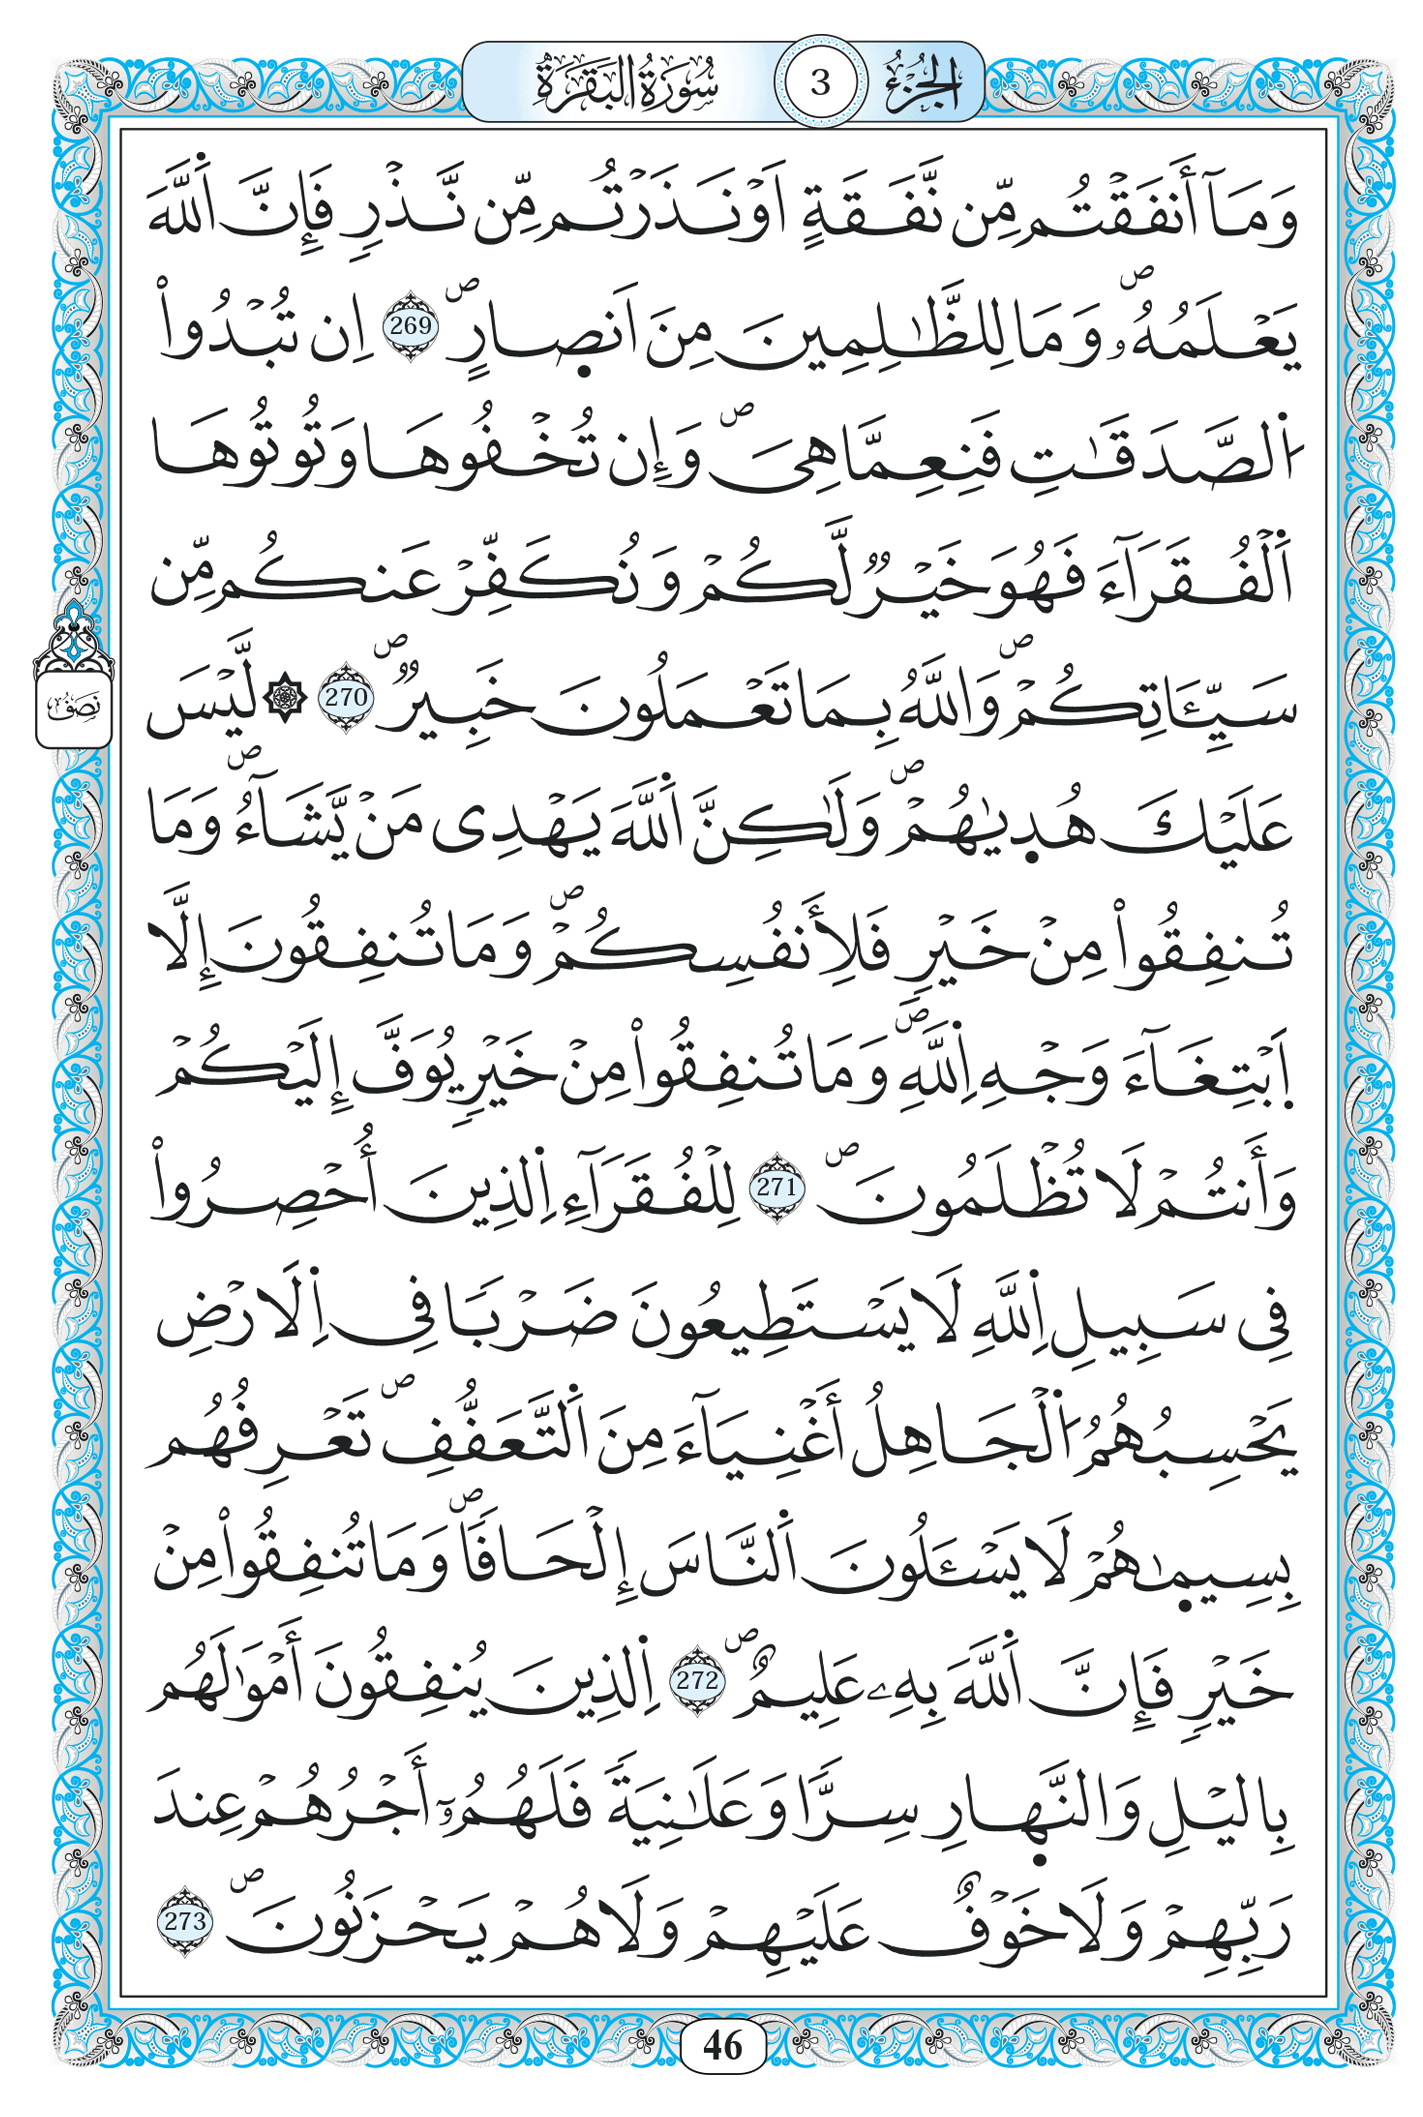 الجُزْءُ 3 سُورَةُ البَقَرَةِ
وَمَآ أَنفَقْتُم مِّن نَّفَقَةٍ اَوْ نَذَرْتُم مِّن نَّذْرٖ فَإِنَّ اَ۬للَّهَ
يَعْلَمُهُۥۖ وَمَا لِلظَّٰلِمِينَ مِنَ اَنص۪ارٍۖ 269 اِن تُبْدُواْ
اُ۬لصَّدَقَٰتِ فَنِعِمَّا هِيَۖ وَإِن تُخْفُوهَا وَتُوتُوهَا
اَ۬لْفُقَرَآءَ فَهُوَ خَيْرٞ لَّكُمْ وَنُكَفِّرْ عَنكُم مِّن
سَيِّـَٔاتِكُمْۖ وَاللَّهُ بِمَا تَعْمَلُونَ خَبِيرٞۖ 270 ۞ لَّيْسَ
عَلَيْكَ هُد۪يٰهُمْۖ وَلَٰكِنَّ اَ۬للَّهَ يَهْدِى مَنْ يَّشَآءُۖ وَمَا
تُنفِقُواْ مِنْ خَيْرٖ فَلِأَنفُسِكُمْۖ وَمَا تُنفِقُونَ إِلَّا
اَ۪بْتِغَآءَ وَجْهِ اِ۬للَّهِۖ وَمَا تُنفِقُواْ مِنْ خَيْرٖ يُوَفَّ إِلَيْكُمْ
وَأَنتُمْ لَا تُظْلَمُونَۖ 271 لِلْفُقَرَآءِ اِ۬لذِينَ أُحْصِرُواْ
فِى سَبِيلِ اِ۬للَّهِ لَا يَسْتَطِيعُونَ ضَرْبٗا فِى اِ۬لَارْضِ
يَحْسِبُهُمُ اُ۬لْجَاهِلُ أَغْنِيَآءَ مِنَ اَ۬لتَّعَفُّفِۖ تَعْرِفُهُم
بِسِيمٰ۪هُمْ لَا يَسْـَٔلُونَ اَ۬لنَّاسَ إِلْحَافٗاۖ وَمَا تُنفِقُواْ مِنْ
خَيْرٖ فَإِنَّ اَ۬للَّهَ بِهِۦ عَلِيمٌۖ 272 اِ۬لذِينَ يُنفِقُونَ أَمْوَٰلَهُم
بِاليْلِ وَالنَّه۪ارِ سِرّٗا وَعَلَٰنِيَةٗ فَلَهُمُۥٓ أَجْرُهُمْ عِندَ
رَبِّهِمْ وَلَا خَوْفٌ عَلَيْهِمْ وَلَا هُمْ يَحْزَنُونَۖ 273
نِصْفُ
46